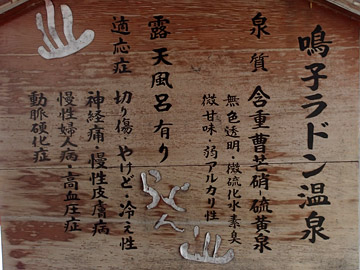 鳴子ラドン温泉
泉質 含重曹芒硝-硫黄泉
無色透明・微硫化水素臭
微甘味・弱アルカリ性
露天風呂有り
適応症 切り傷・やけど・冷え性
神経痛・慢性皮膚病
慢性婦人病・高血圧症
動脈硬化症